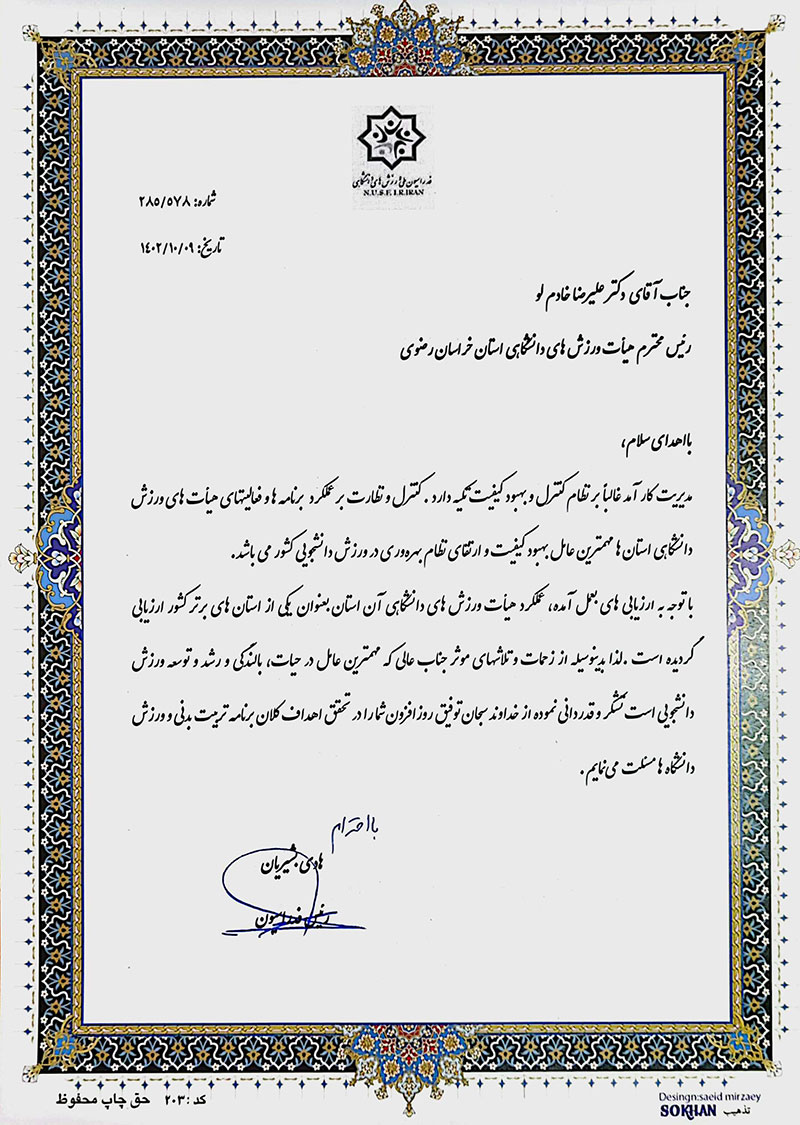 فدراسیون ملی ورزش های دانشگاهی
N.U.S.F. I.R.IRAN
شماره: ۲۸۵/۵۷۸
تاریخ: ۱۴۰۲/۱۰/۰۹
جناب آقای دکتر علیرضا خادم لو
رئیس محترم هیأت ورزش های دانشگاهی استان خراسان رضوی
با اهدای سلام،
مدیریت کار آمد غالباً بر نظام کنترل و بهبود کیفیت تکیه دارد. کنترل و نظارت بر عملکرد برنامه ها و فعالیتهای هیأت های ورزش
دانشگاهی استان ها مهمترین عامل بهبود کیفیت و ارتقای نظام بهره‌وری در ورزش دانشجویی کشور می باشد.
با توجه به ارزیابی های بعمل آمده، عملکرد هیأت ورزش های دانشگاهی آن استان بعنوان یکی از استان های برتر کشور ارزیابی
گردیده است. لذا بدینوسیله از زحمات و تلاشهای موثر جناب عالی که مهمترین عامل در حیات، بالندگی و رشد و توسعه ورزش
دانشجویی است تشکر و قدردانی نموده از خداوند سبحان توفیق روز افزون شما را در تحقق اهداف کلان برنامه تربیت بدنی و ورزش
دانشگاه ها مسئلت می نمایم.
با احترام
هادی بشیریان
رئیس فدراسیون
کد : ۲۰۳ حق چاپ محفوظ
Desingn:saeid mirzaey
SOKHAN تذهیب